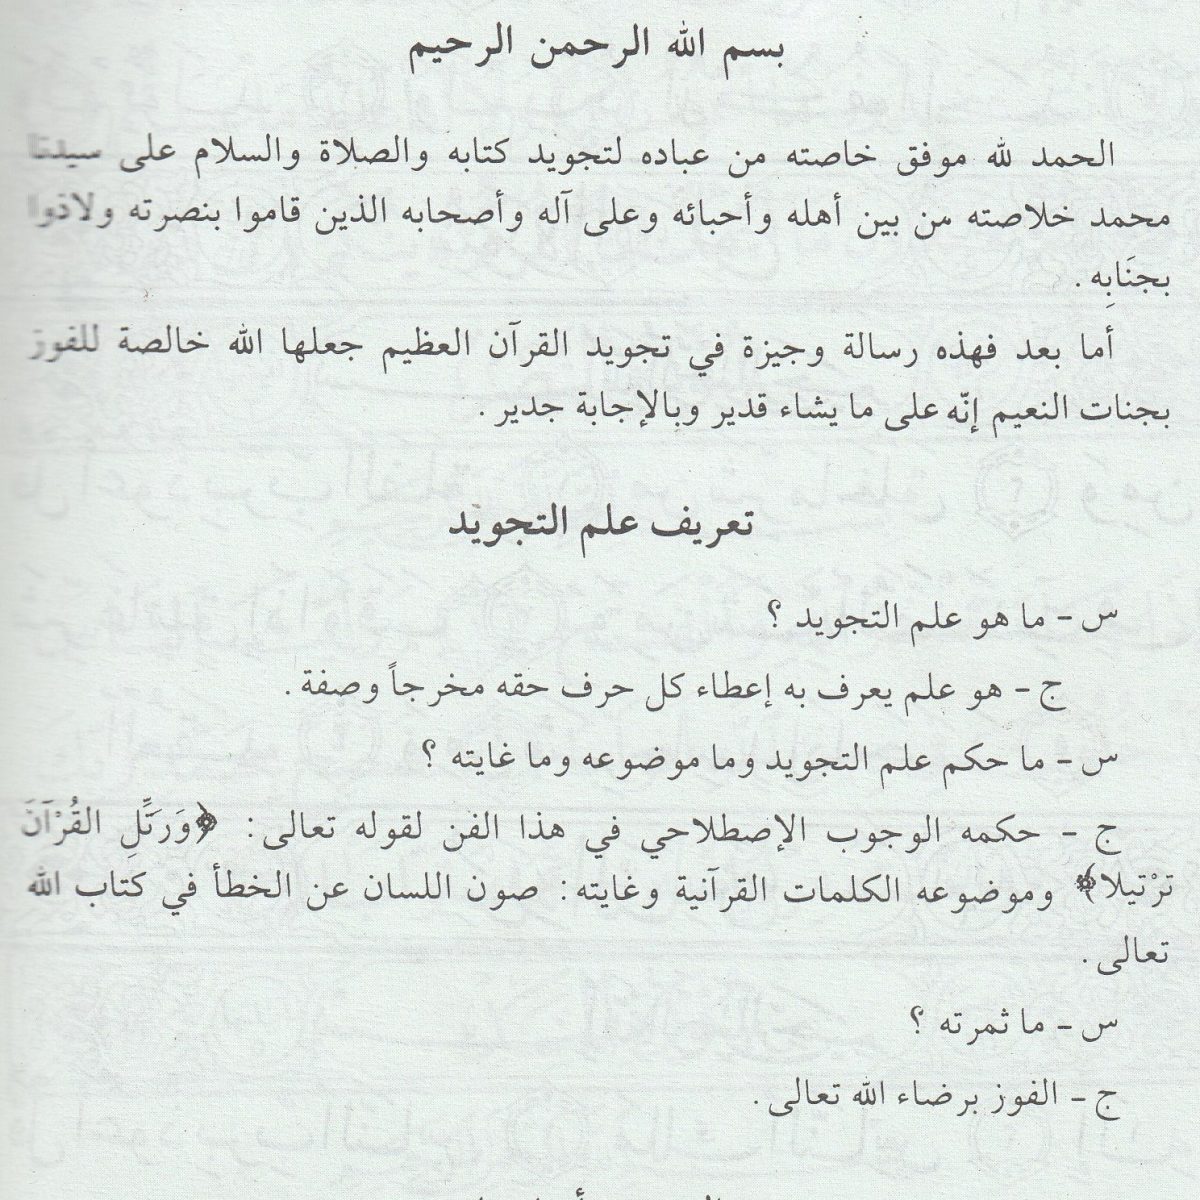 بسم الله الرحمن الرحيم
الحمد لله موفق خاصته من عباده لتجويد كتابه والصلاة والسلام على سيدنا
محمد خلاصته من بين أهله وأحبائه وعلى آله وأصحابه الذين قاموا بنصرته ولاذوا
بجنَابِه .
أما بعد فهذه رسالة وجيزة في تجويد القرآن العظيم جعلها الله خالصة للفوز
بجنات النعيم إنّه على ما يشاء قدير وبالإجابة جدير .
تعريف علم التجويد
س - ما هو علم التجويد ؟
ج - هو علم يعرف به إعطاء كل حرف حقه مخرجاً وصفة .
س - ما حكم علم التجويد وما موضوعه وما غايته ؟
ج - حكمه الوجوب الإصطلاحي في هذا الفن لقوله تعالى : ﴿وَرَتِّلِ القُرْآنَ
ترْتيلا﴾ وموضوعه الكلمات القرآنية وغايته : صون اللسان عن الخطأ في كتاب الله
تعالى .
س - ما ثمرته ؟
ج - الفوز برضاء الله تعالى .